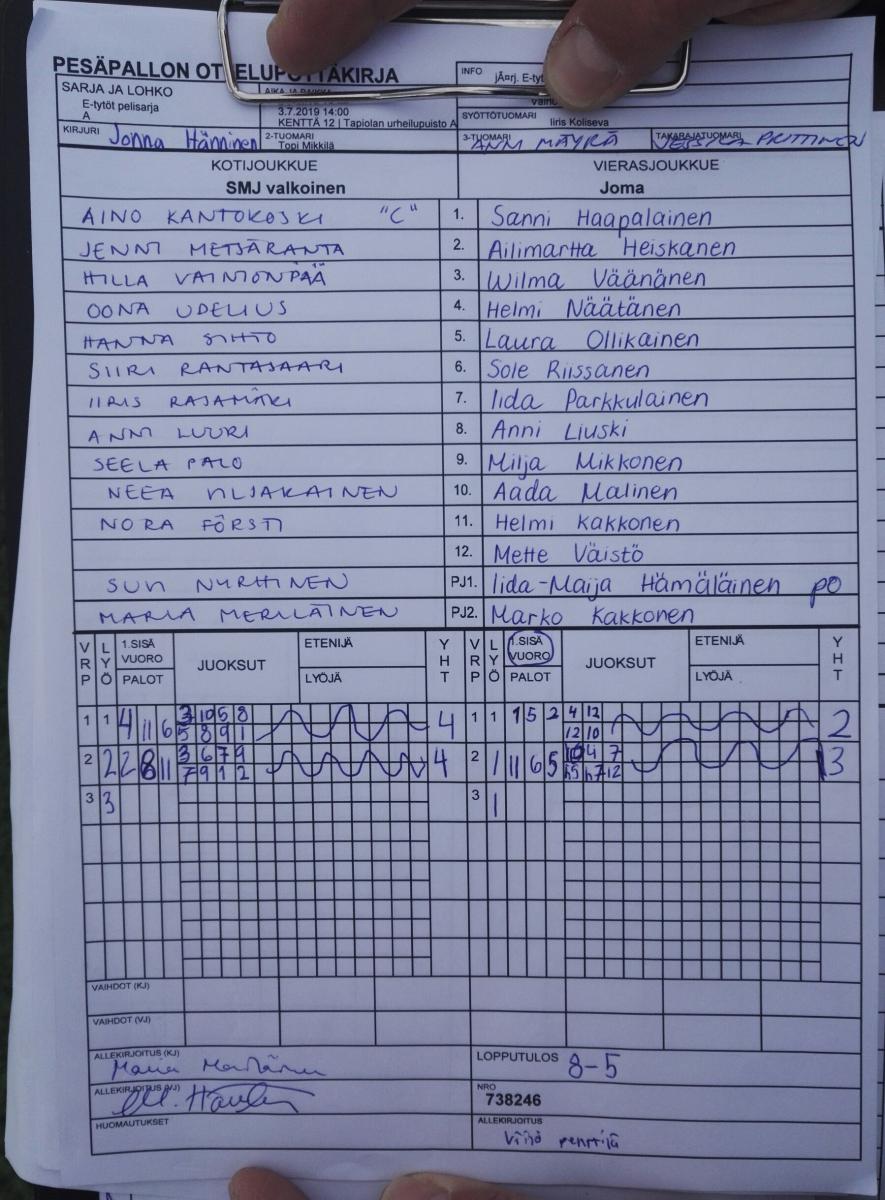 PESÄPALLON OTTELUPÖYTÄKIRJA
INFO jÃ¤rj. E-tyt
SARJA JA LOHKO
E-tytöt pelisarja
A
AIKA JA PAIKKA
3.7.2019 14:00
KENTTÄ 12 | Tapiolan urheilupuisto A
SYÖTTÖTUOMARI
Iiris Koliseva
KIRJURI Jonna Hänninen
2-TUOMARI
Topi Mikkilä
3-TUOMARI
ANNI MÄYRÄ
TAKARAJATUOMARI
KOTIJOUKKUE VIERASJOUKKUE
SMJ valkoinen Joma
AINO KANTOKOSKI "C" 1. Sanni Haapalainen
JENNI METSÄRANTA 2. Ailimartta Heiskanen
HILLA VAINIONPÄÄ 3. Wilma Väänänen
OONA UDELIUS 4. Helmi Näätänen
HANNA SIHTO 5. Laura Ollikainen
SIIRI RANTASAARI 6. Sole Riissanen
IIRIS RAJAMÄKI 7. Iida Parkkulainen
ANNI LUURI 8. Anni Liuski
SEELA PALO 9. Milja Mikkonen
NEEA VILJAKAINEN 10. Aada Malinen
NORA FÖRSTI 11. Helmi Kakkonen
12. Mette Väistö
SUVI NYRHINEN PJ1. Iida-Maija Hämäläinen po
MARIA MERILÄINEN PJ2. Marko Kakkonen
VRP LYÖ 1.SISÄ VUORO PALOT JUOKSUT ETENIJÄ LYÖJÄ YHT VRP LYÖ 1.SISÄ VUORO PALOT JUOKSUT ETENIJÄ LYÖJÄ YHT
1 1 4 11 6 3 10 5 8 4 1 1 1 5 2 4 12 2
5 8 9 1 12 10
2 2 2 8 11 3 6 7 9 4 2 1 11 6 5 10 4 7 3
7 9 1 2 h5 h7 12
3 3 3 1
VAIHDOT (KJ)
VAIHDOT (VJ)
ALLEKIRJOITUS (KJ)
LOPPUTULOS 8-5
ALLEKIRJOITUS (VJ)
NRO
738246
HUOMAUTUKSET
ALLEKIRJOITUS